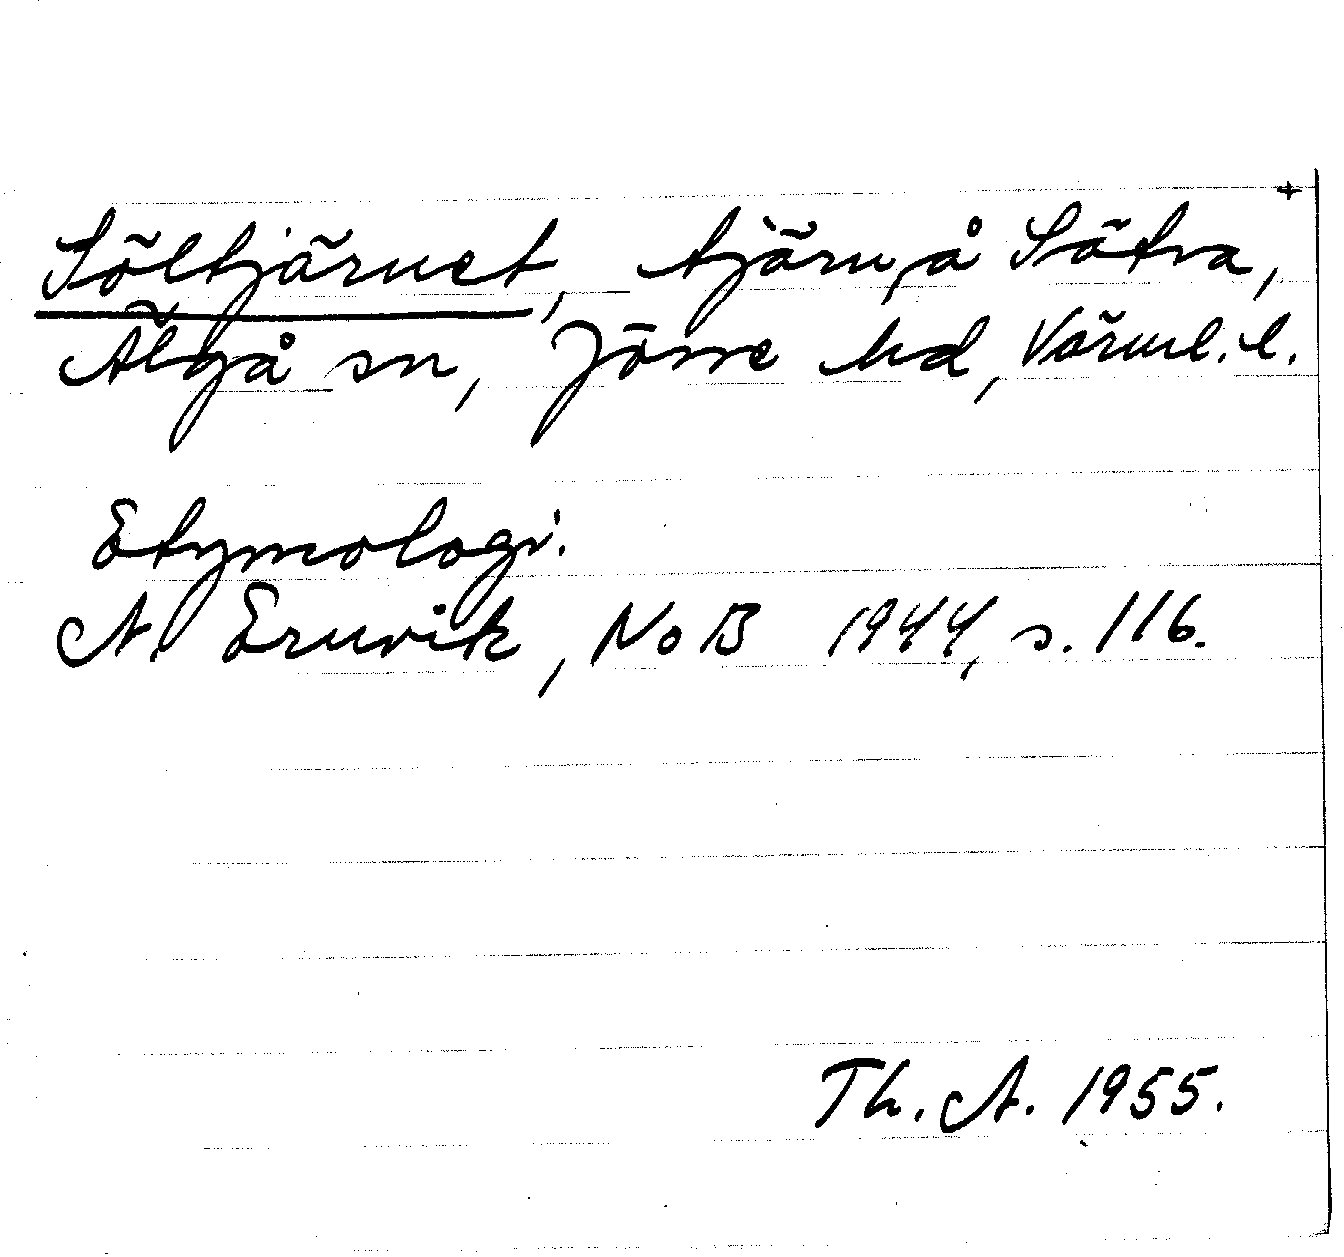 +
Söltjärnet, tjärn å Sätra,
Älgå sn, Jösse hd, Värml. l.
Etymologi.
A. Ernvik, NoB 1944, s. 116.
Th. A. 1955.